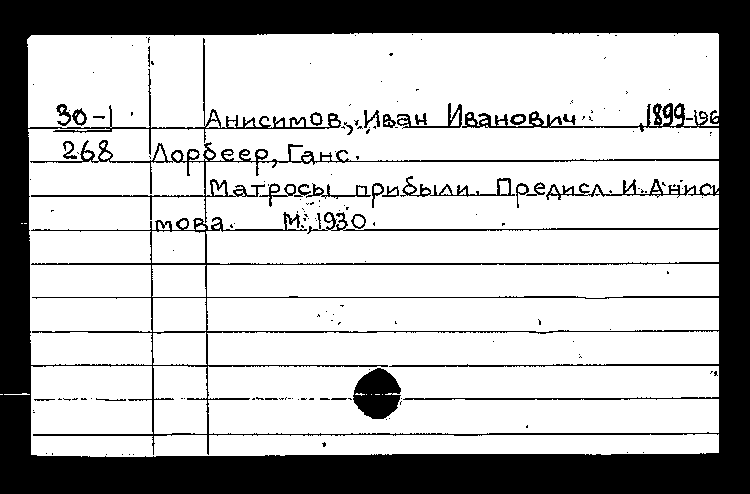 30-1 Анисимов, Иван Иванович ,1899-196
268 Лорбеер, Ганс.
Матросы прибыли. Предисл. И. Аниси
мова. М., 1930.